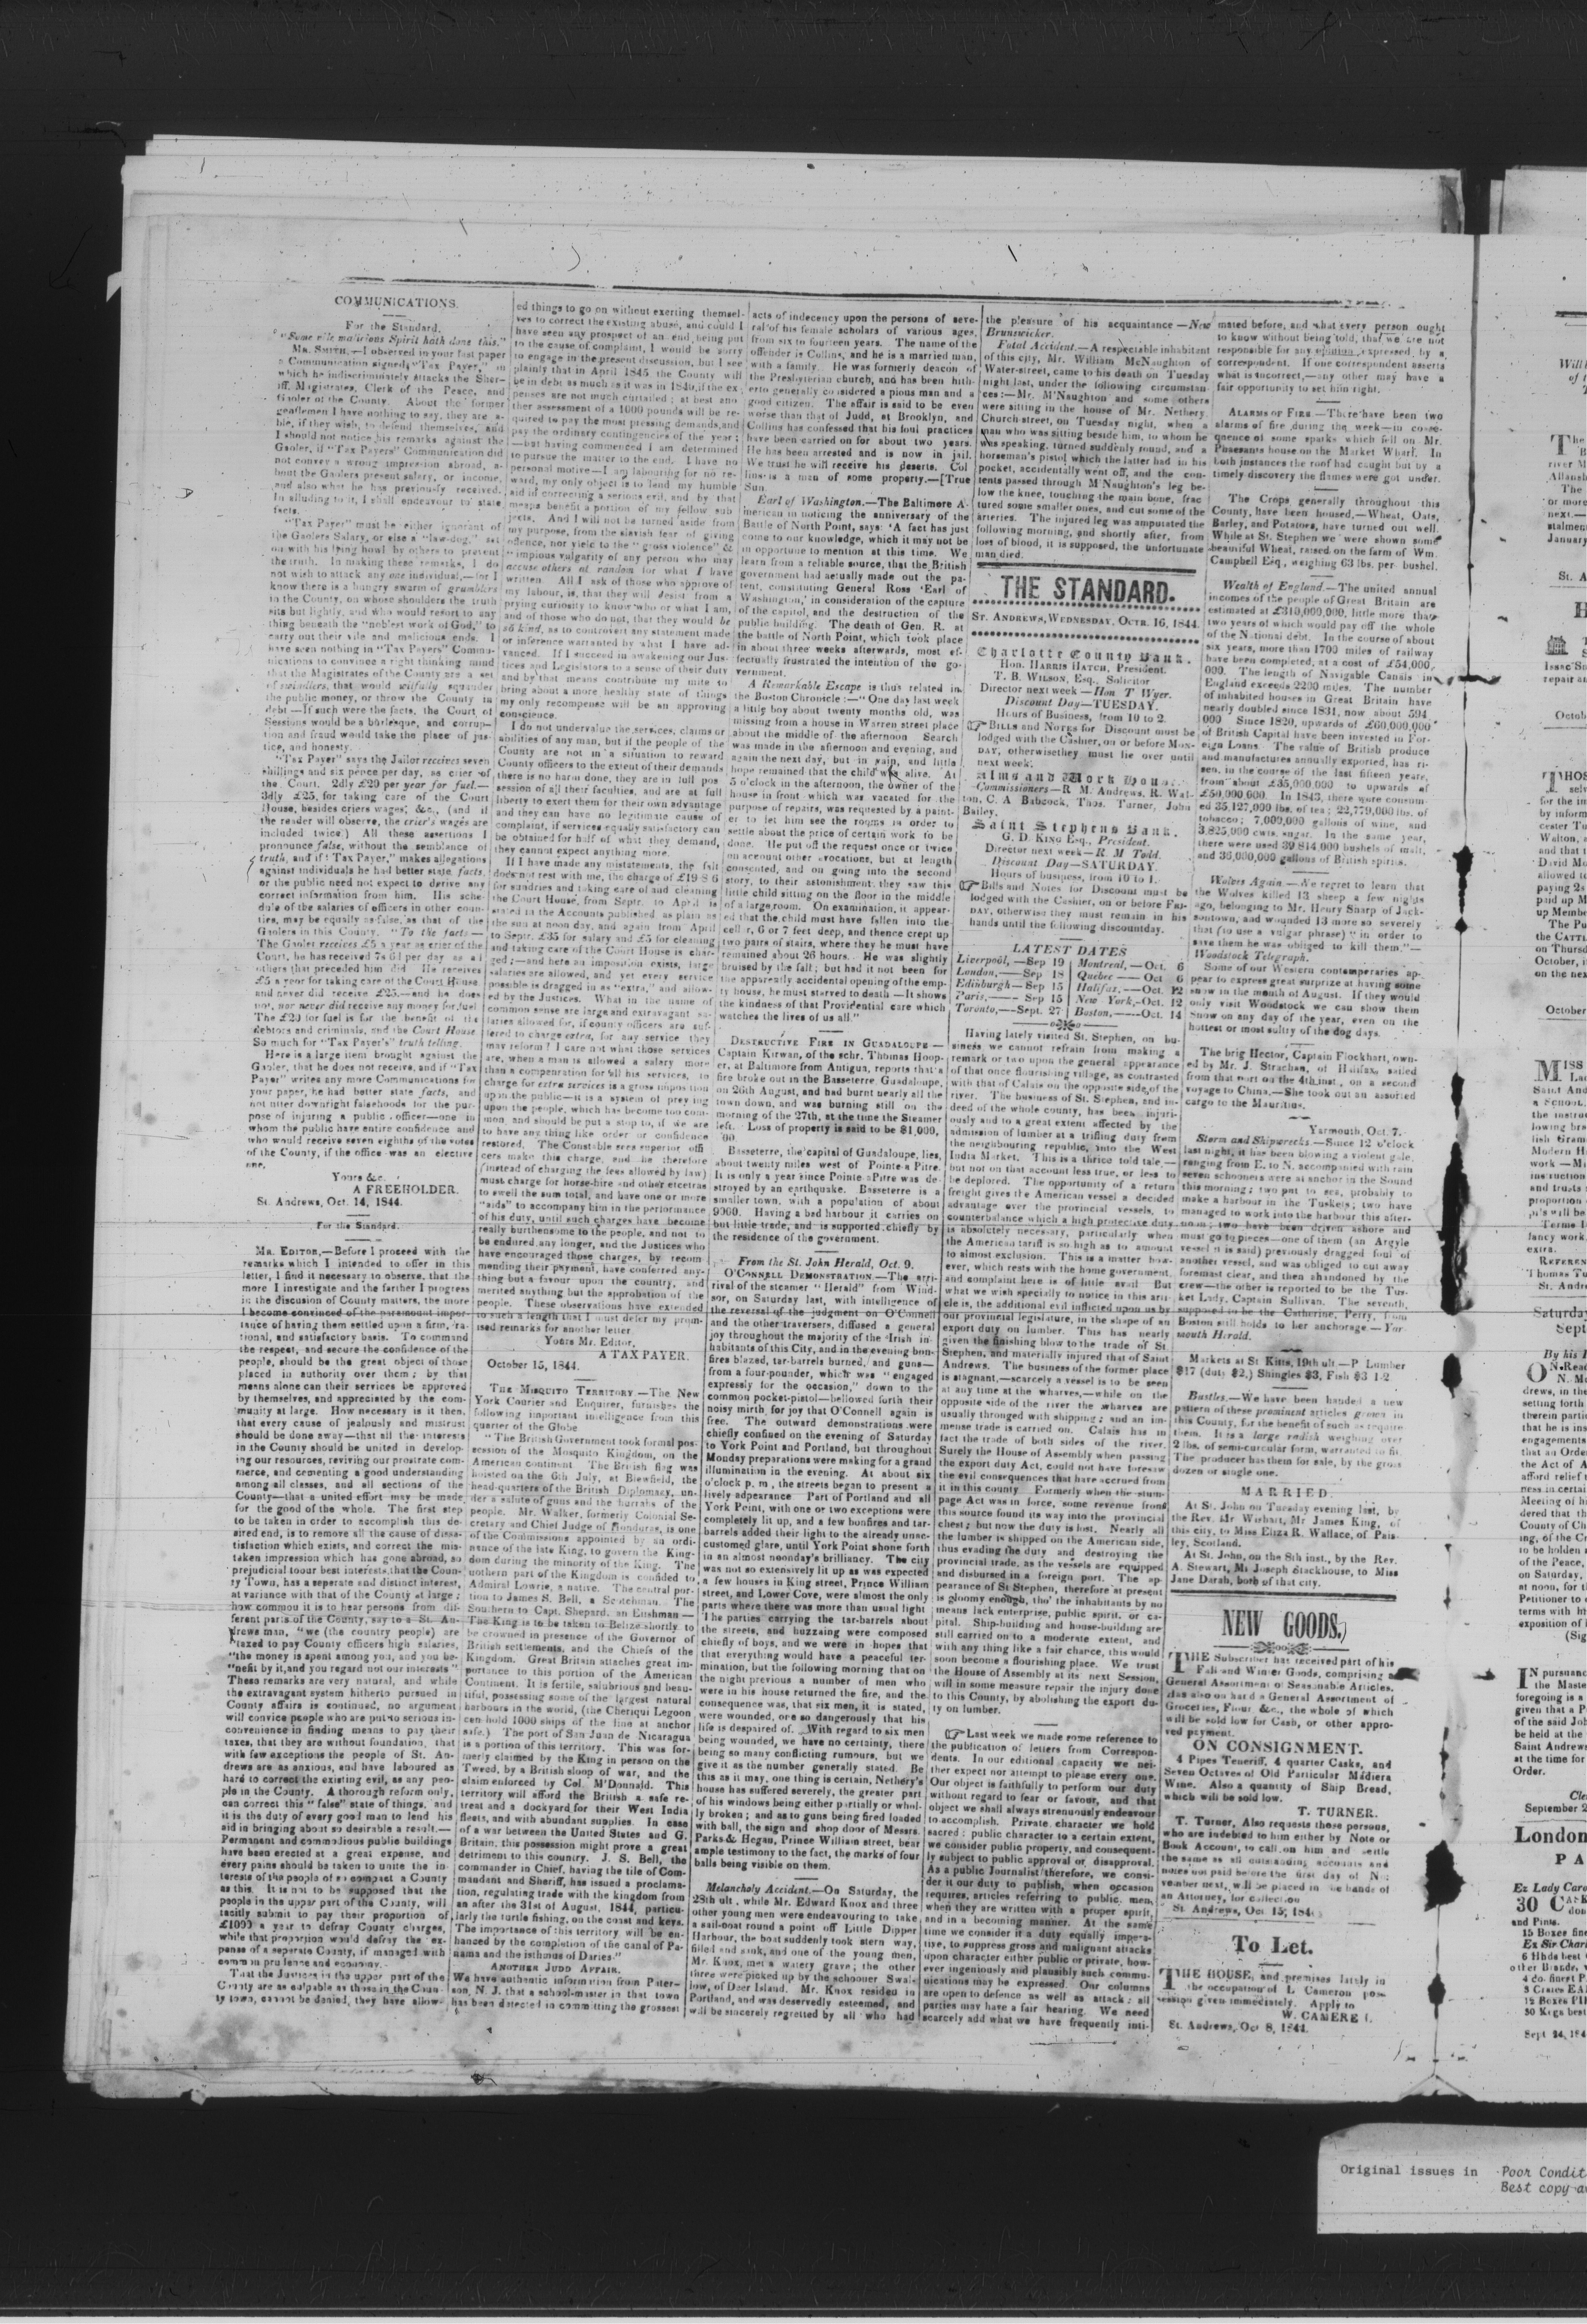 COMMUNICATIONS.
For the Standard.
"Some vile malicious Spirit hath done this."
MR. SMITH,—I observed in your last paper
a Communication signed, "Tax Payer," in
which he indiscriminately attacks the Sher-
iff, Magistrates, Clerk of the Peace, and
Gaoler of the County. About the former
gentlemen I have nothing to say, they are a-
ble, if they wish, to defend themselves, and
I should not notice his remarks against the
Gaoler, if "Tax Payers" Communication did
not convey a wrong impression abroad, a-
bout the Gaolers present salary, or income,
and also what he has previously received.
In alluding to it, I shall endeavour to state
facts.
"Tax Payer" must be either ignorant of
the Gaolers Salary, or else a "law-dog," set
on with his lying howl by others to prevent
the truth. In making these remarks, I do
not wish to attack any one individual,—for I
know there is a hungry swarm of grumblers
in the County, on whose shoulders the truth
sits but lightly, and who would resort to any
thing beneath the "noblest work of God," to
carry out their vile and malicious ends. I
have seen nothing in "Tax Payers" Commu-
nications to convince a right thinking mind
that the Magistrates of the County are a set
of swindlers, that would wilfully squander
the public money, or throw the County in
debt—If such were the facts, the Court of
Sessions would be a burlesque, and corrup-
tion and fraud would take the place of jus-
tice, and honesty.
"Tax Payer" says the Jailor receives seven
shillings and six pence per day, as crier of
the Court. 2dly £20 per year for fuel.—
3dly £25, for taking care of the Court
House, besides criers wages, &c., (and if
the reader will observe, the crier's wages are
included twice.) All these assertions I
pronounce false, without the semblance of
truth, and if "Tax Payer," makes allegations
against individuals he had better state facts,
or the public need not expect to derive any
correct information from him. His sche-
dule of the salaries of officers in other coun-
ties, may be equally as false, as that of the
Gaolers in this County. "To the facts—
The Gaoler receives £5 a year as crier of the
Court, he has received 7s 6d per day as all
others that preceded him did He receives
£5 a year for taking care of the Court House
and never did receive £25.—and he does
not, nor never did receive any money for fuel
The £20 for fuel is for the benefit of the
debtors and criminals, and the Court House
So much for "Tax Payer's" truth telling.
Here is a large item brought against the
Gaoler, that he does not receive, and if "Tax
Payer" writes any more Communications for
your paper, he had better state facts, and
not utter downright falsehoods for the pur-
pose of injuring a public officer—one in
whom the public have entire confidence and
who would receive seven eighths of the votes
of the County, if the office was an elective
one,
Yours &c.
A FREEHOLDER.
St. Andrews, Oct. 14, 1844.
For the Standard.
MR. EDITOR,—Before I proceed with the
remarks which I intended to offer in this
letter, I find it necessary to observe, that the
more I investigate and the farther I progress
in the discusion of County matters, the more
I become convinced of the paramount impor-
tance of having them settled upon a firm, ra-
tional, and satisfactory basis. To command
the respect, and secure the confidence of the
people, should be the great object of those
placed in authority over them; by that
means alone can their services be approved
by themselves, and appreciated by the com-
munity at large. How necessary is it then,
that every cause of jealousy and mistrust
should be done away—that all the interests
in the County should be united in develop-
ing our resources, reviving our prostrate com-
merce, and cementing a good understanding
among all classes, and all sections of the
County—that a united effort may be made
for the good of the whole. The first step
to be taken in order to accomplish this de-
sired end, is to remove all the cause of dissa-
tisfaction which exists, and correct the mis-
taken impression which has gone abroad, so
prejudicial toour best interests, that the Coun-
ty Town, has a seperate and distinct interest,
at variance with that of the County at large;
how commou it is to hear persons from dif-
ferent parts of the County, say to a St. An-
drews man, "we (the country people) are
"taxed to pay County officers high salaries,
"the money is spent among you, and you be-
"nefit by it, and you regard not our interests"
These remarks are very natural, and while
the extravagant system hitherto pursued in
County affairs is continued, no argument
will convice people who are put to serious in-
convenience in finding means to pay their
taxes, that they are without foundation, that
with few exceptions the people of St. An-
drews are as anxious, and have laboured as
hard to correct the existing evil, as any peo-
ple in the County. A thorough reform only,
can correct this "false" state of things, and
it is the duty of every good man to lend his
aid in bringing about so desirable a result.—
Permanent and commodious public buildings
have been erected at a great expense, and
every pains should be taken to unite the in-
terests of the people of so compact a County
as this. It is not to be supposed that the
people in the upper part of the County, will
tacitly submit to pay their proportion of
£1000 a year to defray County charges,
while that proportion would defray the ex-
pense of a seperate County, if managed with
common prudence and economy.
That the Justices in the upper part of the
County are as culpable as those in the Coun-
ty town, cannot be denied, they have allow-
ed things to go on without exerting themsel-
ves to correct the existing abuse, and could I
have seen any prospect of an end being put
to the cause of complaint, I would be sorry
to engage in the present discussion, but I see
plainly that in April 1845 the County will
be in debt as much as it was in 1840, if the ex-
penses are not much curtailed; at best ano
ther assessment of a 1000 pounds will be re-
quired to pay the most pressing demands, and
pay the ordinary contingencies of the year;
—but having commenced I am determined
to pursue the matter to the end. I have no
personal motive—I am labouring for no re-
ward, my only object is to lend my humble
aid in correcting a serious evil, and by that
means benefit a portion of my fellow sub
jects. And I will not be turned aside from
my purpose, from the slavish fear of giving
offence, nor yield to the "gross violence" &
"impious vulgarity of any person who may
accuse others at random for what I have
written. All I ask of those who approve of
my labour, is, that they will desist from a
prying curiosity to know who or what I am,
and of those who do not, that they would be
so kind, as to controvert any statement made
or inference warranted by what I have ad-
vanced. If I succeed in awakening our Jus-
tices and Legislators to a sense of their duty
and by that means contribute my mite to
bring about a more healthy state of things
my only recompense will be an approving
conscience.
I do not undervalue the services, claims or
abilities of any man, but if the people of the
County are not in a situation to reward
County officers to the extent of their demands
there is no harm done, they are in full pos
session of all their faculties, and are at full
liberty to exert them for their own advantage
and they can have no legitimate cause of
complaint, if services equally satisfactory can
be obtained for half of what they demand,
they cannot expect anything more.
If I have made any mistatements, the falt
does not rest with me, the charge of £19 8 6
for sundries and taking care of and cleaning
the Court House, from Septr. to April is
stated in the Accounts published as plain as
the sun at noon day, and again from April
to Septr. £35 for salary and £5 for cleaning
and taking care of the Court House is char-
ged;—and here an imposition exists, large
salaries are allowed, and yet every service
possible is dragged in as "extra," and allow-
ed by the Justices. What in the name of
common sense are large and extravagant sa-
laries allowed for, if county officers are suf-
fered to charge extra, for any service they
may reform? I care not what those services
are, when a man is allowed a salary more
than a compensation for all his services, to
charge for extra services is a gross imposition
upon the public—it is a system of preying
upon the people, which has become too com-
mon, and should be put a stop to, if we are
to have any thing like order or confidence
restored. The Constable sees superior offi
cers make this charge, and he therefore
(instead of charging the fees allowed by law)
must charge for horse-hire and other etcetras
to swell the sum total, and have one or more
"aids" to accompany him in the performance
of his duty, until such charges have become
really burthensome to the people, and not to
be endured any longer, and the Justices who
have encouraged those charges, by recom
mending their payment, have conferred any-
thing but a favour upon the country, and
merited anything but the approbation of the
people. These observations have extended
to such a length that I must defer my prom-
ised remarks for another letter.
Yours Mr. Editor,
A TAX PAYER.
October 15, 1844.
THE MISQUITO TERRITORY.—The New
York Courier and Enquirer, furnishes the
following important intelligence from this
quarter of the Globe
"The British Government took formal pos-
session of the Mosquito Kingdom, on the
American continent. The British flag was
hoisted on the 6th July, at Blewfield, the
head-quarters of the British Diplomacy, un-
der a salute of guns and the hurrahs of the
people. Mr. Walker, formerly Colonial Se-
cretary and Chief Judge of Honduras, is one
of the Commissions appointed by an ordi-
nance of the late King, to govern the King-
dom during the minority of the King. The
nothern part of the Kingdom is confided to
Admiral Lowrie, a native. The central por-
tion to James S. Bell, a Scotchman. The
Southern to Capt. Shepard, an Enshman—
The King is to be taken to Belize shortly to
be crowned in presence of the Governor of
British settlements, and the Chiefs of the
Kingdom. Great Britain attaches great im-
portance to this portion of the American
Continent. It is fertile, salubrious and beau-
tiful, possessing some of the largest natural
harbours in the world, (the Cheriqui Legoon
can hold 1000 ships of the line at anchor
safe.) The port of San Juan de Nicaragua
is a portion of this territory. This was for-
merly claimed by the King in person on the
Tweed, by a British sloop of war, and the
claim enforced by Col. M'Donald. This
territory will afford the British a safe re-
treat and a dockyard for their West India
fleets, and with abundant supplies. In case
of a war between the United States and G.
Britain, this possession might prove a great
detriment to this country. J. S. Bell, the
commander in Chief, having the tile of Com-
mandant and Sheriff, has issued a proclama-
tion, regulating trade with the kingdom from
an after the 31st of August, 1844, particu-
larly the turtle fishing, on the coast and keys.
The importance of this territory will be en-
hanced by the completion of the canal of Pa-
nama and the isthmus of Daries."
ANOTHER JUDD AFFAIR.
We have authentic information from Pater-
son, N. J. that a school-master in that town
has been detected in committing the grossest
acts of indecency upon the persons of seve-
ral of his female scholars of various ages,
from six to fourteen years. The name of the
offender is Collins, and he is a married man,
with a family. He was formerly deacon of
the Presbyterian church, and has been hith-
erto generally considered a pious man and a
good citizen. The affair is said to be even
worse than that of Judd, at Brooklyn, and
Collins has confessed that his foul practices
have been carried on for about two years.
He has been arrested and is now in jail.
We trust he will receive his deserts. Col
lins is a man of some property.—[True
Sun.
Earl of Washington.—The Baltimore A-
merican in noticing the anniversary of the
Battle of North Point, says: 'A fact has just
come to our knowledge, which it may not be
in opportune to mention at this time. We
learn from a reliable source, that the British
government had actually made out the pa-
tent, constituting General Ross 'Earl of
Washington,' in consideration of the capture
of the capitol, and the destruction of the
public building. The death of Gen. R. at
the battle of North Point, which took place
in about three weeks afterwards, most ef-
fectually frustrated the intention of the go-
vernment.
A Remarkable Escape is thus related in
the Boston Chronicle:—"One day last week
a little boy about twenty months old, was
missing from a house in Warren street place
about the middle of the afternoon Search
was made in the afternoon and evening, and
again the next day, but in vain, and little
hope remained that the child was alive. At
5 o'clock in the afternoon, the owner of the
house in front which was vacated for the
purpose of repairs, was requested by a paint-
er to let him see the rooms in order to
settle about the price of certain work to be
done. He put off the request once or twice
on account other avocations, but at length
consented, and on going into the second
story, to their astonishment they saw this
little child sitting on the floor in the middle
of a large room. On examination, it appear-
ed that the child must have fallen into the
cellar, 6 or 7 feet deep, and thence crept up
two pairs of stairs, where they he must have
remained about 26 hours. He was slightly
bruised by the fall; but had it not been for
the apparently accidental opening of the emp-
ty house, he must starved to death—It shows
the kindness of that Providential care which
watches the lives of us all."
DESTRUCTIVE FIRE IN GUADALOUPE—
Captain Kirwan, of the schr. Thomas Hoop-
er, at Baltimore from Antigua, reports that a
fire broke out in the Basseterre, Guadaloupe,
on 26th August, and had burnt nearly all the
town down, and was burning still on the
morning of the 27th, at the time the Steamer
left. Loss of property is said to be $1,000,
'00.
Basseterre, the capital of Guadaloupe, lies
about twenty miles west of Pointe a Pitre.
It is only a year since Pointe aPitre was de-
stroyed by an earthquake. Basseterre is a
smaller town, with a population of about
9000. Having a bad harbour it carries on
but little trade, and is supported chiefly by
the residence of the government.
From the St. John Herald, Oct. 9.
O'CONNELL DEMONSTRATION.—The arri-
rival of the steamer "Herald" from Wind-
sor, on Saturday last, with intelligence of
the reversal of the judgment on O'Connell
and the other traversers, diffused a general
joy throughout the majority of the Irish in-
habitants of this City, and in the evening bon-
fires blazed, tar-barrels burned, and guns—
from a four-pounder, which was "engaged
expressly for the occasion," down to the
common pocket-pistol—bellowed forth their
noisy mirth, for joy that O'Connell again is
free. The outward demonstrations were
chiefly confiued on the evening of Saturday
to York Point and Portland, but throughout
Monday preparations were making for a grand
illumination in the evening. At about six
o'clock p. m, the streets began to present a
lively adpearance Part of Portland and all
York Point, with one or two exceptions were
completely lit up, and a few bonfires and tar-
barrels added their light to the already unac-
customed glare, until York Point shone forth
in an almost noonday's brilliancy. The city
was not so extensively lit up as was expected
a few houses in King street, Prince William
street, and Lower Cove, were almost the only
parts where there was more than usual light
The parties carrying the tar-barrels about
the streets, and buzzaing were composed
chiefly of boys, and we were in hopes that
that everything would have a peaceful ter-
mination, but the following morning that on
the night previous a number of men who
were in his house returned the fire, and the
consequence was, that six men, it is stated,
were wounded, one so dangerously that his
life is despaired of. With regard to six men
being wounded, we have no certainty, there
being so many conflicting rumours, but we
give it as the number generally stated. Be
this as it may, one thing is certain, Nethery's
house has suffered severely, the greater part
of his windows being either partially or whol-
ly broken; and as to guns being fired loaded
with ball, the sign and shop door of Messrs.
Parks & Hegan, Prince William street, bear
ample testimony to the fact, the marks of four
balls being visible on them.
Melancholy Accident.—On Saturday, the
28th ult, while Mr. Edward Knox and three
other young men were endeavouring to take
a sail-boat round a point off Little Dipper
Harbour, the boat suddenly took stern way,
filled and sunk, and one of the young men,
Mr. Knox, met a watery grave; the other
three were picked up by the schooner Swal-
low, of Deer Island. Mr. Knox resided in
Portland, and was deservedly esteemed, and
will be sincerely regretted by all who had
the pleasure of his acquaintance—New
Brunswicker.
Fatal Accident.—A respectable inhabitant
of this city, Mr. William McNaughton of
Water-street, came to his death on Tuesday
night last, under the following circumstan-
ces:—Mr. M'Naughton and some others
were sitting in the house of Mr. Nethery.
Church street, on Tuesday night, when a
man who was sitting beside him, to whom he
was speaking, turned suddenly round, and a
horseman's pistol which the latter had in his
pocket, accidentally went off, and the con-
tents passed through M'Naughton's leg be-
low the knee, touching the main bone, frac
tured some smaller ones, and cut some of the
arteries. The injured leg was amputated the
following morning, and shortly after, from
loss of blood, it is supposed, the unfortunate
man died.
THE STANDARD.
ST. ANDREWS, WEDNESDAY, OCTR. 16, 1844.
Charlotte County Bank.
Hon. HARRIS HATCH, President.
T. B. WILSON, Esq., Solicitor
Director next week—Hon. T Wyer.
Discount Day—TUESDAY.
Hours of Business, from 10 to 2.
BILLS and NOTES for Discount must be
lodged with the Cashier, on or before MON-
DAY, otherwisethey must lie over until
next week.
Alms and Work House.
Commissioners—R M. Andrews, R. Wat-
ton, C. A Babcock, Thos. Turner, John
Bailey.
Saint Stephens Bank.
G. D. KING Esq., President.
Director next week—R M Todd.
Discount Day—SATURDAY.
Hours of business, from 10 to 1.
Bills and Notes for Discount must be
lodged with the Cashier, on or before FRI-
DAY, otherwise they must remain in his
hands until the following discountday.
LATEST DATES
Liverpool,—Sep 19 | Montreal,—Oct. 6
London,—Sep 18 | Quebec—Oct 6
Edinburgh—Sep 15 | Halifax,—Oct. 12
Paris,—Sep 15 | New York,—Oct. 12
Toronto,—Sept. 27 | Boston,—Oct. 14
Having lately visited St. Stephen, on bu-
siness we cannot refrain from making a
remark or two upon the general appearance
of that once flourishing village, as contrasted
with that of Calais on the opposite side of the
river. The business of St. Stephen, and in-
deed of the whole county, has been injuri-
ously and to a great extent affected by the
admission of lumber at a trifling duty from
the neighbouring republic, into the West
India Market. This is a thrice told tale,—
but not on that account less true, or less to
be deplored. The opportunity of a return
freight gives the American vessel a decided
advantage over the provincial vessels, to
counterbalance which a high protective duty
is absolutely necessary, particularly when
the American tariff is so high as to amount
to almost exclusion. This is a matter how-
ever, which rests with the home government,
and complaint here is of little avail But
what we wish specially to notice in this arti-
cle is, the additional evil inflicted upon us by
our provincial legislature, in the shape of an
export duty on lumber. This has nearly
given the finishing blow to the trade of St
Stephen, and materially injured that of Saint
Andrews. The business of the former place
is stagnant,—scarcely a vessel is to be seen
at any time at the wharves,—while on the
opposite side of the river the wharves are
usually thronged with shipping; and an im-
mense trade is carried on. Calais has in
fact the trade of both sides of the river.
Surely the House of Assembly when passing
the export duty Act, could not have foresaw
the evil consequences that have accrued from
it in this county Formerly when the stum-
page Act was in force, some revenue from
this source found its way into the provincial
chest; but now the duty is lost. Nearly all
the lumber is shipped on the American side,
thus evading the duty and destroying the
provincial trade, as the vessels are equipped
and disbursed in a foreign port. The ap-
pearance of St Stephen, therefore at present
is gloomy enough, tho' the inhabitants by no
means lack enterprise, public spirit, or ca-
pital. Ship-building and house-building are
still carried on to a moderate extent, and
with any thing like a fair chance, this would
soon become a flourishing place. We trust
the House of Assembly at its next Session,
will in some measure repair the injury done
to this County, by abolishing the export du-
ty on lumber.
Last week we made some reference to
the publication of letters from Correspon-
dents. In our editorial capacity we nei-
ther expect nor attempt to please every one.
Our object is faithfully to perform our duty
without regard to fear or favour, and that
object we shall always strenuously endeavour
to accomplish. Private character we hold
sacred: public character to a certain extent,
we consider public property, and consequent-
ly subject to public approval or disapproval.
As a public Journalist therefore, we consi-
der it our duty to publish, when occasion
requires, articles referring to public men,
when they are written with a proper spirit,
and in a becoming manner. At the same
time we consider it a duty equally impera-
tive, to suppress gross and malignant attacks
upon character either public or private, how-
ever ingeniously and plausibly such commu-
nications may be expressed. Our columns
are open to defence as well as attack; all
parties may have a fair hearing. We need
scarcely add what we have frequently inti-
mated before, and that every person ought
to know without being told, that we are not
responsible for any opinion expressed by a
correspondent. If one correspondent asserts
what is incorrect,—any other may have a
fair opportunity to set him right.
ALARMS OF FIRE.—There have been two
alarms of fire during the week—in conse-
quence of some sparks which fell on Mr.
Pheasants house on the Market Wharf. In
both instances the roof had caught but by a
timely discovery the flames were got under.
The Crops generally throughout this
County, have been housed,—Wheat, Oats,
Barley, and Potatoes, have turned out well.
While at St. Stephen we were shown some
beautiful Wheat, raised on the farm of Wm.
Campbell Esq, weighing 63 lbs. per bushel.
Wealth of England.—The united annual
incomes of the people of Great Britain are
estimated at £310,000,000, little more than
two years of which would pay off the whole
of the National debt. In the course of about
six years, more than 1700 miles of railway
have been completed, at a cost of £54,000,
000. The length of Navigable Canals in
England exceeds 2200 miles. The number
of inhabited houses in Great Britain have
nearly doubled since 1831, now about 594
000 Since 1820, upwards of £60,000,000
of British Capital have been invested in For-
eign Loans. The value of British produce
and manufactures annually exported, has ri-
sen, in the course of the last fifteen years,
from about £35,000,000 to upwards of
£50,000,000. In 1843, there were consum-
ed 35,127,000 lbs. of tea; 22,779,000 lbs. of
tobacco; 7,000,000 gallons of wine, and
3,825,000 cwts. sugar. In the same year,
there were used 39 814,000 bushels of malt,
and 36,000,000 gallons of British spirits.
Wolves Again.—We regret to learn that
the Wolves killed 13 sheep a few nights
ago, belonging to Mr. Henry Sharp of Jack-
sontown, and wounded 13 more so severely
that (to use a vulgar phrase) "in order to
save them he was obliged to kill them."—
Woodstock Telegraph.
Some of our Western contemperaries ap-
pear to express great surprise at having some
snow in the month of August. If they would
only visit Woodstock we can show them
Snow on any day of the year, even on the
hottest or most sultry of the dog days.
The brig Hector, Captain Flockhart, own-
ed by Mr. J. Strachan, of Halifax, sailed
from that port on the 4th inst, on a second
voyage to China.—She took out an assorted
cargo to the Mauritius.
Yarmouth, Oct. 7.
Storm and Shipwrecks.—Since 12 o'clock
last night, it has been blowing a violent gale,
ranging from E. to N. accompanied with rain
seven schooners were at anchor in the Sound
this morning; two put to sea, probably to
make a harbour in the Tuskets; two have
managed to work into the harbour this after-
noon; two have been driven ashore and
must go to pieces—one of them (an Argyle
vessel it is said) previously dragged foul of
another vessel, and was obliged to cut away
foremast clear, and then abandoned by the
crew—the other is reported to be the Tus-
ket Lady, Captain Sullivan. The seventh,
supposed to be the Catherine, Perry, from
Boston still holds to her anchorage—Yar-
mouth Herald.
Markets at St Kitts, 19th ult.—P Lumber
$17 (duty $2,) Shingles $3, Fish $3 1-2
Bustles.—We have been handed a new
pattern of these prominent articles grown in
this County, for the benefit of such as require
them. It is a large radish weighing over
2 lbs. of semi-curcular form, warranted to fit.
The producer has them for sale, by the gross
dozen or single one.
MARRIED.
At St. John on Tuesday evening last, by
the Rev. Mr Wishart, Mr James King, of
this city, to Miss Eliza R. Wallace, of Pais-
ley, Scotland.
At St. John, on the 8th inst., by the Rev.
A. Stewart, Mr Joseph Stackhouse, to Miss
Jane Darah, both of that city.
NEW GOODS.
THE Subscriber has received part of his
Fall and Winter Goods, comprising a
General Assortment of Seasonable Articles.
Has also on hand a General Assortment of
Groceries, Flour &c., the whole of which
will be sold low for Cash, or other appro-
ved payment.
ON CONSIGNMENT.
4 Pipes Teneriff, 4 quarter Casks, and
Seven Octaves of Old Particular Madiera
Wine. Also a quantity of Ship Bread,
which will be sold low.
T. TURNER.
T. Turner, Also requests those persons,
who are indebted to him either by Note or
Book Account, to call on him and settle
the same as all outstanding accounts and
notes not paid before the first day of No-
vember next, will be placed in the hands of
an Attorney, for collection
St. Andrews, Oct 15, 184
To Let.
THE HOUSE, and premises lately in
the occupation of L Cameron pos-
session given immediately. Apply to
W. CAMERE
St. Andrews, Oct 8, 1844.
Original issues in Poor Condit
Best copy av
Will b
of t
The
river M
Allansh
The
or more
next.—
stalmen
January
St. A
H
Isaac Sn
repair an
Octob
THOS
selv
for the in
by inform
cester Tu
Walton, a
and that t
David Mo
allowed to
paying 2s
paid up M
up Membe
The Pu
the CATTL
on Thursd
October, i
on the nex
October
MISS
La
Saint And
a SCHOOL,
the instru
lowing bra
lish Gram
Modern H
work—M
instruction
and trusts
proportion
pi's will be
Terms 1
fancy work
extra.
REFEREN
Thomas Tu
St. Andr
Saturday
Sept
By his H
ON Read
N. M
drews, in the
setting forth
therein parti
that he is ins
engagements
that an Orde
the Act of A
afford relief t
ness in certai
Meeting of h
dered that th
County of Ch
ing, of the Cr
to be holden a
of the Peace,
on Saturday,
at noon, for t
Petitioner to
terms with hi
exposition of
(Sig
IN pursuanc
the Maste
foregoing is a
given that a P
of the said Joh
be held at the
Saint Andrews
at the time for
Order.
Cle
September 2
London
PA
Ex Lady Caro
30 CASK
dou
and Pints.
15 Boxes fine
Ex Sir Charl
6 Hhds best
other Brands,
4 do. finest P
3 Crates EA
12 Boxes PI
50 Kegs best
Sept 24, 184